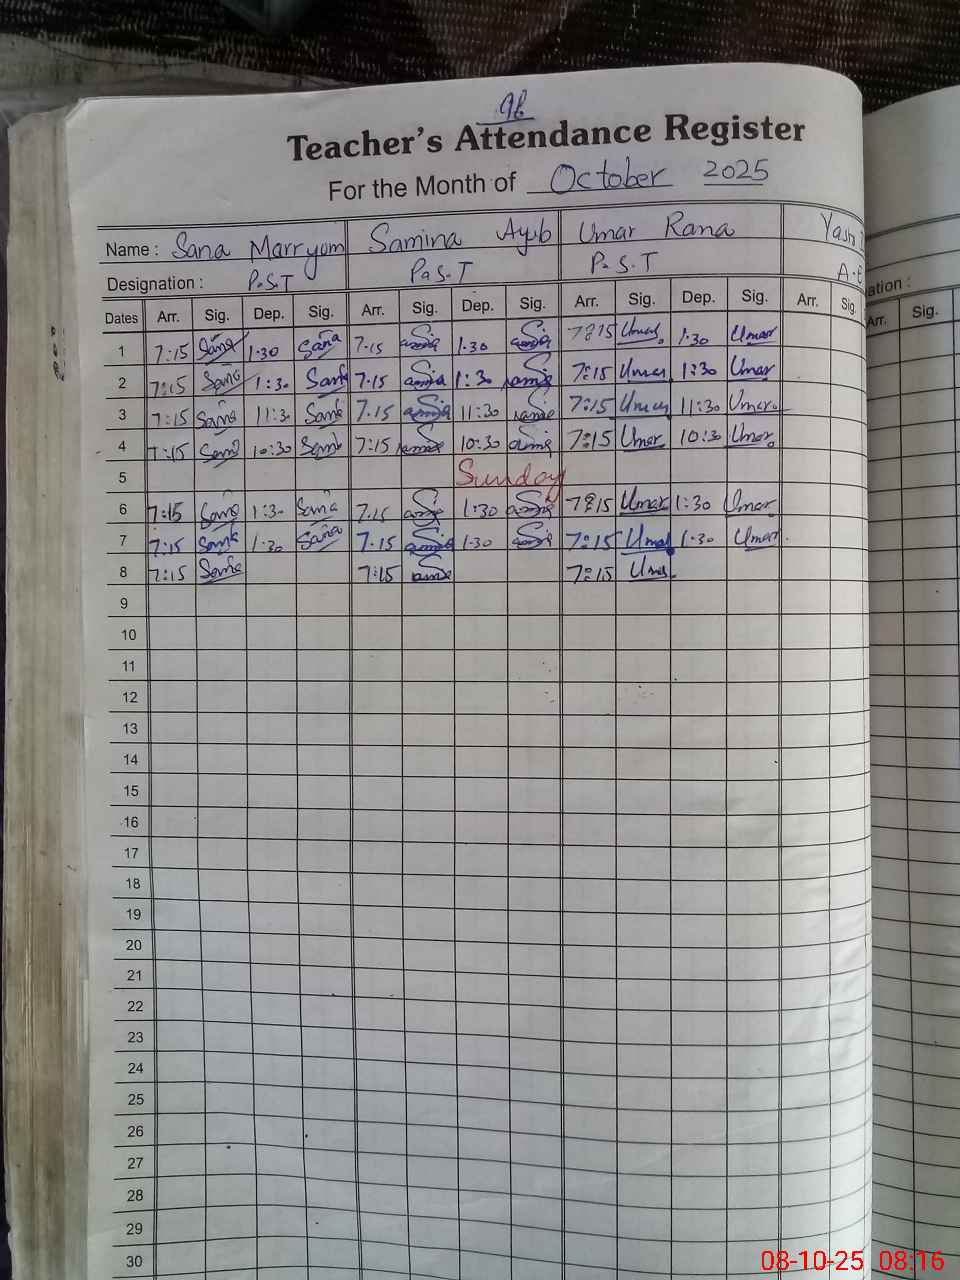 96
Teacher's Attendance Register
For the Month of October 2025
Name : Sana Marryom Samina Ayub Umar Rana
Designation : P.S.T P.S.T P.S.T
Dates Arr. Sig. Dep. Sig. Arr. Sig. Dep. Sig. Arr. Sig. Dep. Sig. Arr. Sig. Arr. Sig.
1 7:15 Sana 1.30 Sana 7.15 1.30 7:15 Umar 1.30 Umar
2 7:15 Sana 1:30 Sana 7.15 1:30 7:15 Umar 1:30 Umar
3 7:15 Sana 11:30 Sana 7.15 11:30 7:15 Umar 11:30 Umar
4 7:15 Sana 10:30 Sana 7:15 10:30 7:15 Umar 10:30 Umar
5 Sunday
6 7:15 Sana 1:30 Sana 7.15 1:30 7:15 Umar 1:30 Umar
7 7:15 Sana 1.30 Sana 7.15 1.30 7:15 Umar 1.30 Umar
8 7:15 Sana 7:15 7:15 Umar
9
10
11
12
13
14
15
16
17
18
19
20
21
22
23
24
25
26
27
28
29
30
08-10-25 08:16